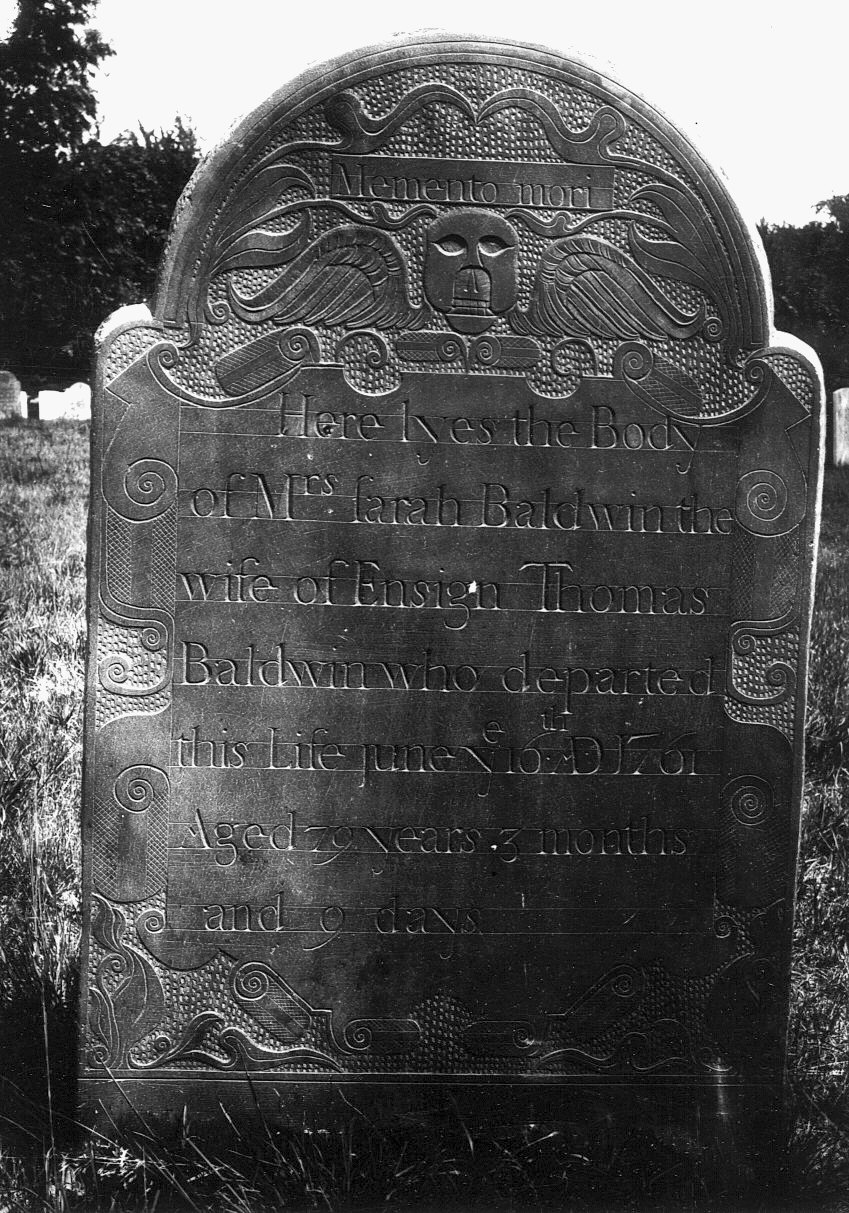 Memento mori
Here lyes the Body
of Mrs sarah Baldwin the
wife of Ensign Thomas
Baldwin who departed
this Life june ye 16th AD 1761
Aged 79 years 3 months
and 9 days